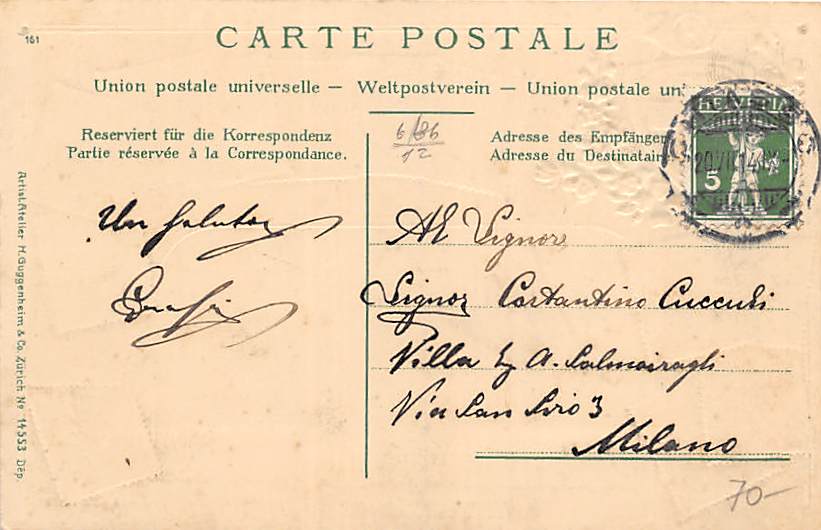 161
CARTE POSTALE
Union postale universelle — Weltpostverein — Union postale uni
Reserviert für die Korrespondenz
Partie réservée à la Correspondance.
6/86
12
Adresse des Empfänger
Adresse du Destinatair
HELVETIA
5
Un saluto
Al Signore
Signor Costantino
Villa Ing A. Salmoiraghi
Via San Siro 3
Milano
Artist.Atelier H.Guggenheim & Co. Zürich No 14553 Dép.
70-